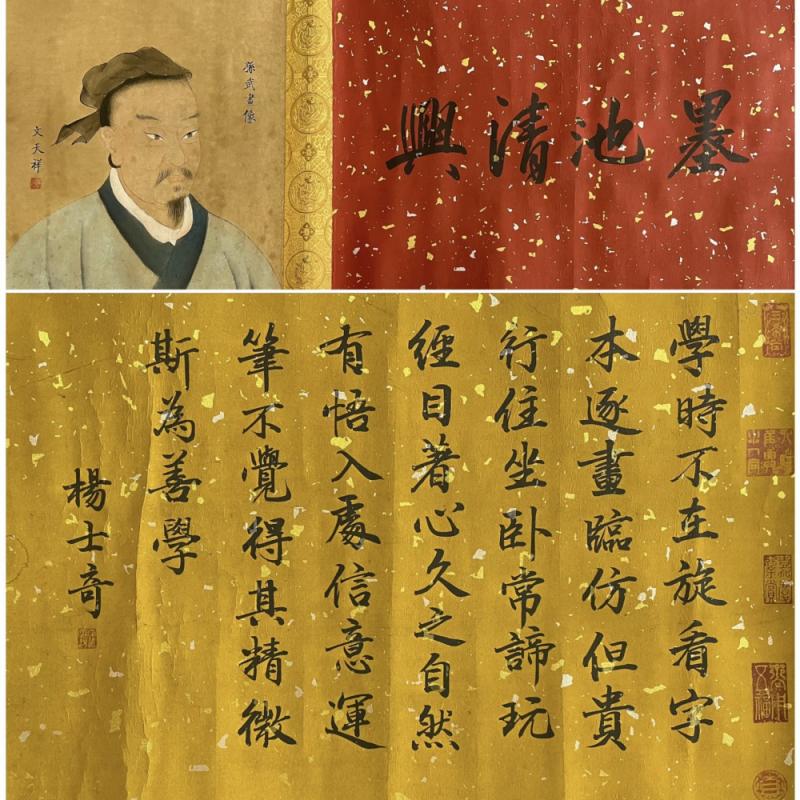 孫武畫像
文天祥
墨池清興
學時不在旋看字
本逐畫臨仿但貴
行住坐卧常諦玩
經目著心久之自然
有悟入處信意運
筆不覺得其精微
斯為善學
楊士奇